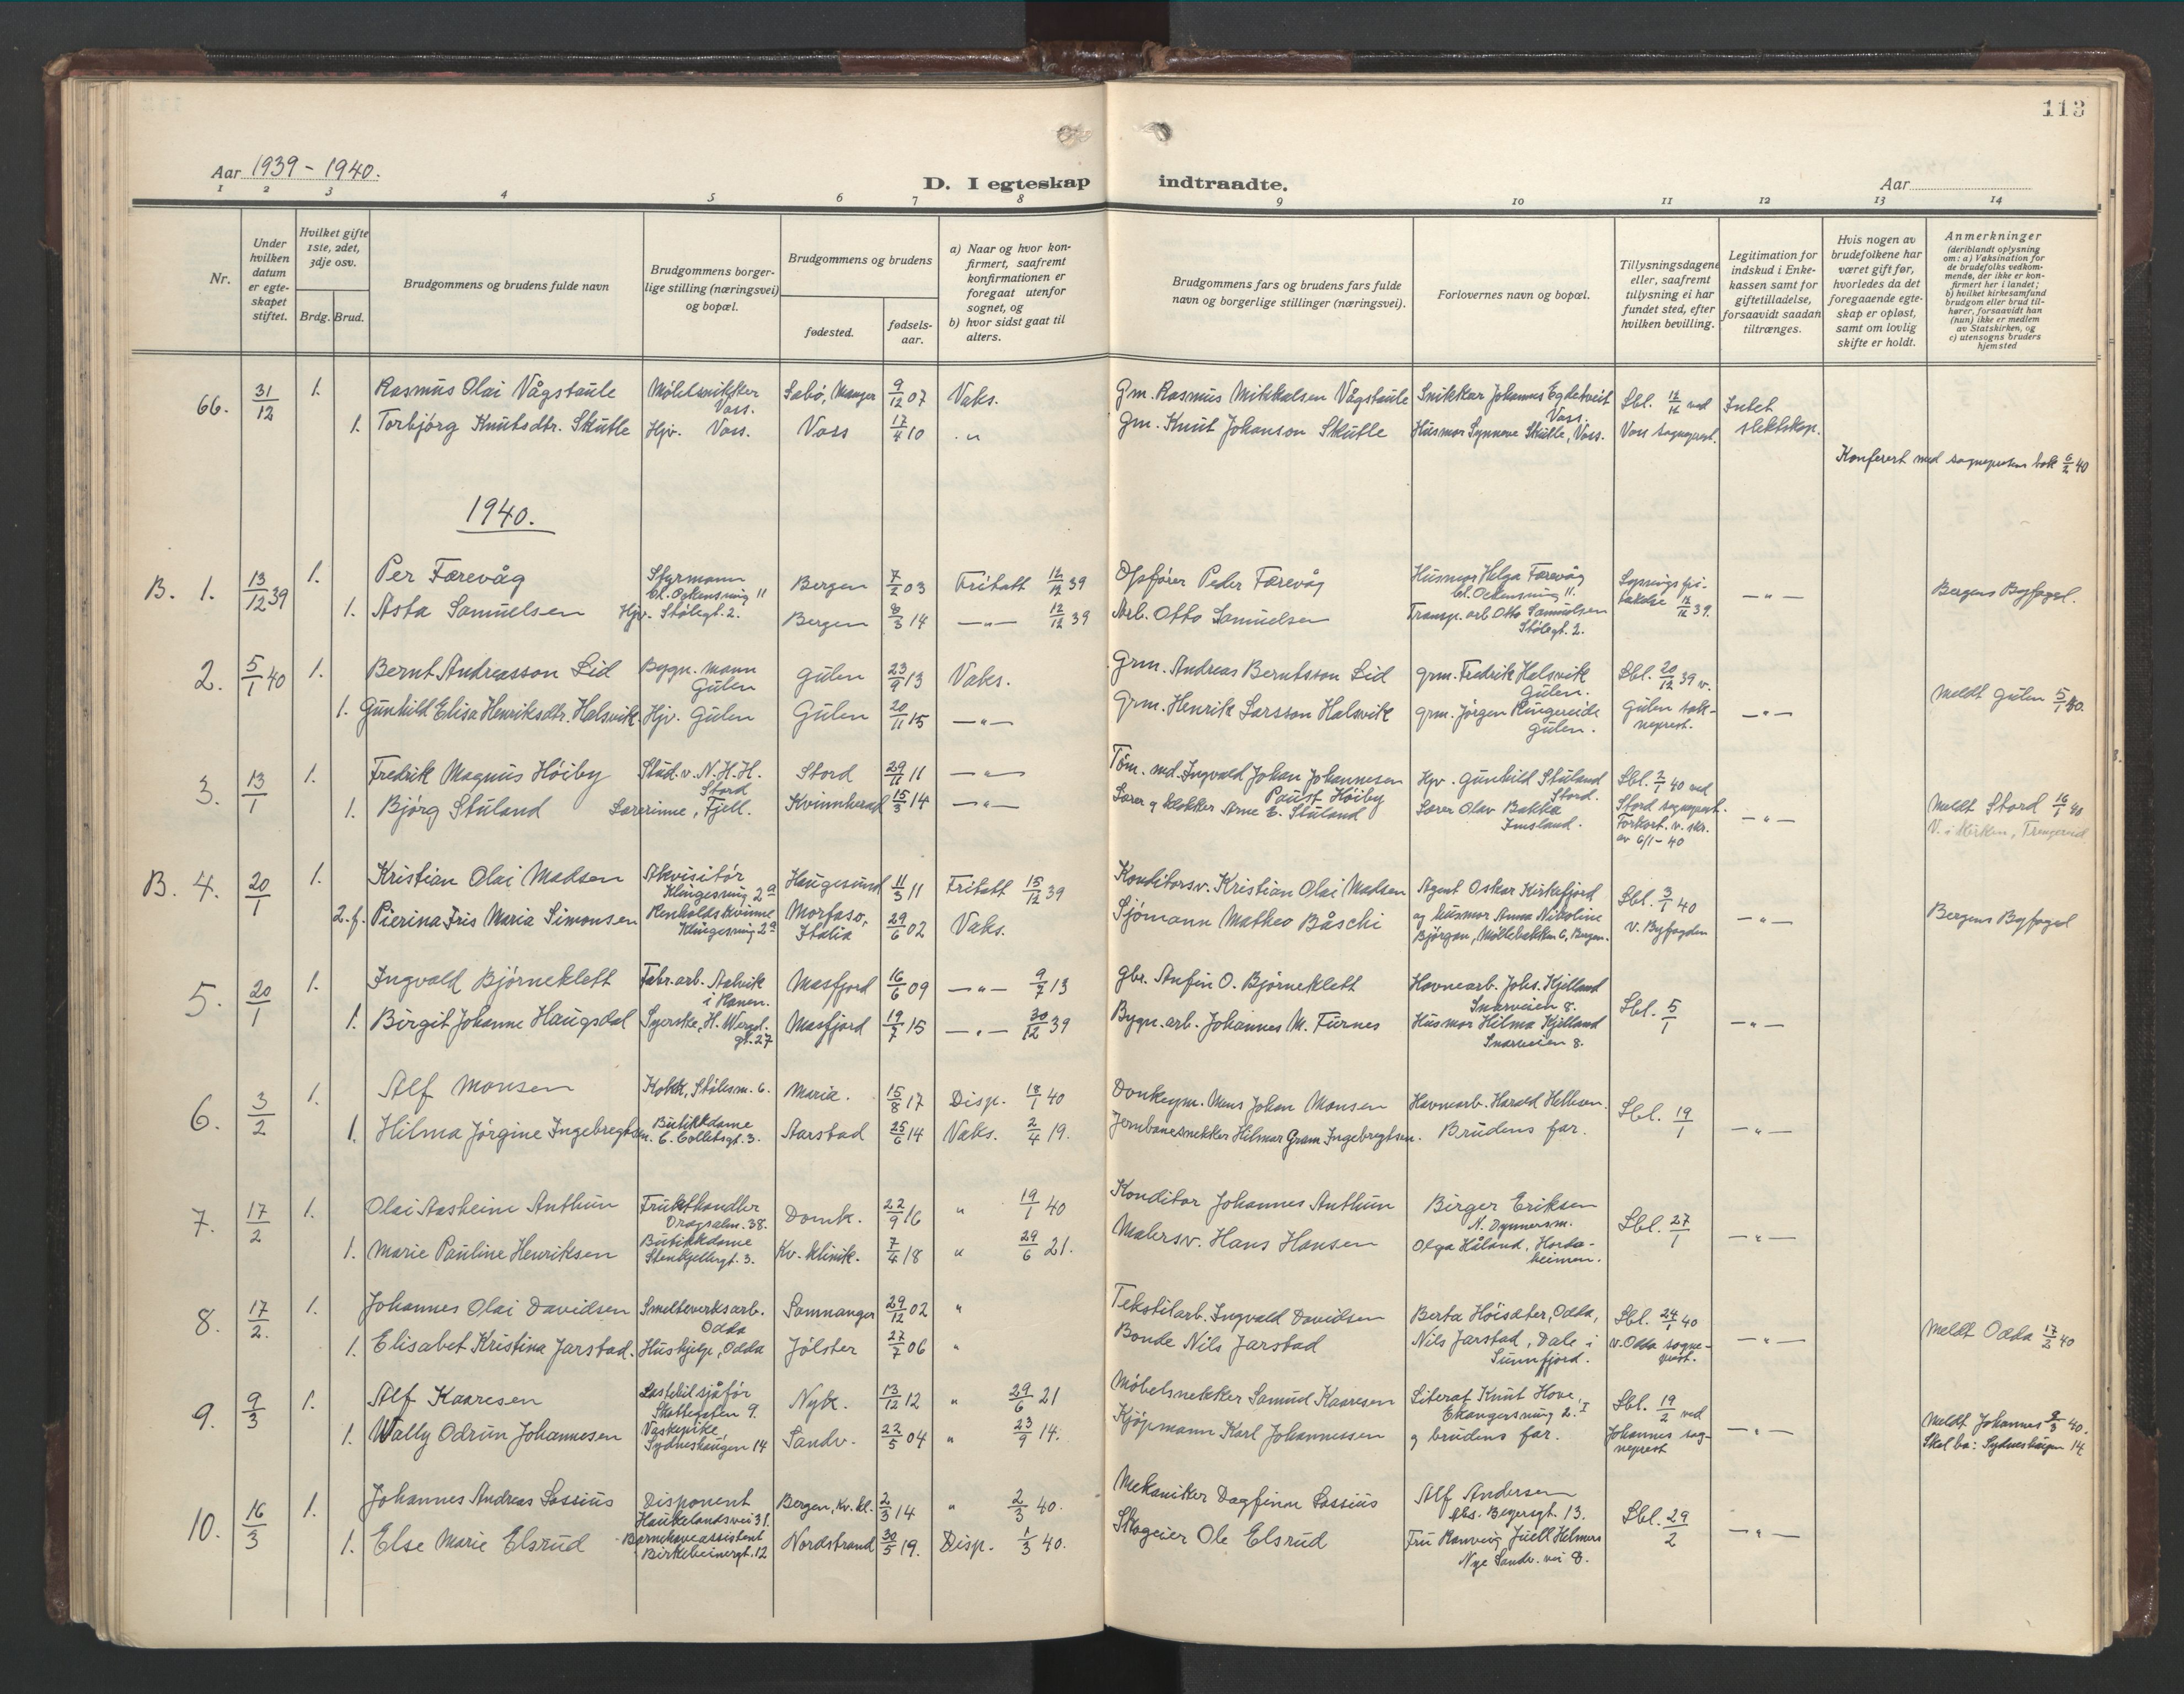 113
Aar 1939 - 1940.
D. I egteskap indtraadte.
Aar
1 2 3 4 5 6 7 8 9 10 11 12 13 14
Nr.
Under hvilken datum er egteskapet stiftet.
Hvilket gifte 1ste, 2det, 3dje osv.
Brdg. Brud.
Brudgommens og brudens fulde navn
Brudgommens borgerlige stilling (næringsvei) og bopæl.
Brudgommens og brudens
fødested.
fødselsaar.
a) Naar og hvor konfirmert, saafremt konfirmationen er foregaat utenfor sognet, og
b) hvor sidst gaat til alters.
Brudgommens fars og brudens fars fulde navn og borgerlige stillinger (næringsvei).
Forlovernes navn og bopæl.
Tillysningsdagene eller, saafremt tillysning ei har fundet sted, efter hvilken bevilling.
Legitimation for indskud i Enkekassen samt for giftetilladelse, forsaavidt saadan tiltrænges.
Hvis nogen av brudefolkene har været gift før, hvorledes da det foregaaende egteskap er opløst, samt om lovlig skifte er holdt.
Anmerkninger
(deriblandt oplysning om: a) Vaksination for de brudefolks vedkommende, der ikke er konfirmert her i landet;
b) hvilket kirkesamfund brudgom eller brud tilhører, forsaavidt han (hun) ikke er medlem av Statskirken, og
c) utensogns bruders hjemsted
66. 31/12 1. Rasmus Olai Vågstaule Møbelsnikker Voss. Sabø, Manger 9/12 07 Vaks. Gm. Rasmus Mikkalsen Vågstaule Snikkar Johannes Egdetveit Voss. Lbl. 12/12 ved Intet
1. Torbjørg Knutsdtr. Skutle Hjv. Voss. Voss 17/4 10 " Gm. Knut Johanson Skutle Husmor Synnøve Skutle, Voss. Voss sogneprest. slektskap.
Konferert med sogneprestens bok 6/2 40
1940.
B. 1. 13/12 39 1. Per Færevåg Styrmann 11 Bergen 7/2 03 Fritatt 12/12 39 Opsfører Peder Færevåg Husmor Helga Færevåg 11. Lysningsfritakelse 12/12 39. — " — Bergens Byfogd.
1. Asta Samuelsen Hjv. Stølegt. 2. Bergen 8/3 14 — " — 12/12 39 Arb. Otto Samuelsen Transp. arb Otto Samuelsen Stølegt. 2.
2. 5/1 40 1. Bernt Andreasson Lid Bygn. mann Gulen Gulen 23/9 13 Vaks. Grm. Andreas Berntsson Lid grm. Fredrik Halsvik Gulen. Lbl. 20/12 39 v.
1. Gunhild Elisa Henriksdtr. Halsvik Hjv. Gulen Gulen 20/11 15 — " — Grm. Henrik Larsson Halsvik grm. Jørgen Ringereide Gulen. Gulen sokneprest. — " — Meldt Gulen 5/1 40.
3. 13/1 1. Fredrik Magnus Høiby Stud. v. N.H.H. Stord Stord 29/11 11 — " — Tøm. md. Ingvald Johan Johannesen Paust Høiby Hjv. Gunhild Stuland Stord. Lbl. 2/1 40 ved
1. Bjørg Stuland Lærerinne, Fjell. Kvinnherad 15/3 14 — " — Lærer og klokker Arne E. Stuland Lærer Olav Bakka Imsland. Stord sogneprest. Forkort. v. skr. av 6/1-40 — " — Meldt Stord 16/1 40
V. i Kirken,
B. 4. 20/1 1. Kristian Olai Madsen Akvisitør Klingesmug 2a Haugesund 11/5 11 Fritatt 15/12 39 Konditorsv. Kristian Olai Madsen Agent Oskar Kirkefjord Lbl. 3/1 40
2. f. Pierina Fris Maria Simonsen Renholdskvinne Klingesmug 2a Morfaso, Italia 29/6 02 Vaks. Sjømann Matheo Båschi og husmor Anna Nikoline Bjørgan, Møllebakken 6, Bergen. v. Byfogden — " — Bergens Byfogd
5. 20/1 1. Ingvald Bjørneklett Fabr. arb. Aalvik i Hanen. Masfjord 16/6 09 — " — 9/7 13 gbr. Anfin O. Bjørneklett Havnearb. Johs. Kjelland Snarveien 8. Lbl. 5/1
1. Birgit Johanne Haugsdal Syerske, H. Wergel. gt. 27 Masfjord 19/7 15 — " — 30/12 39 Bygn. arb. Johannes M. Furnes Husmor Hilma Kjelland Snarveien 8. — " —
6. 3/2 1. Alf Monsen Kokk, Stølesm. 6. Maria. 15/8 17 Disp. 18/1 40 Donkeym. Mons Johan Monsen Havnearb. Harald Hellesen. Lbl. 19/1
1. Hilma Jørgine Ingebregtsen. Butikkdame C. Colletsgt. 3. Aarstad 25/6 14 Vaks. 2/4 19. Jernbanesnekker Hilmar Gram Ingebregtsen. Brudens far. — " —
7. 17/2 1. Olai Aasheim Anthun Frukthandler Dragsalm. 38. Domk. 22/9 16 " 19/1 40 Konditor Johannes Anthun Birger Eriksen N. Dynnersm. Lbl. 27/1
1. Marie Pauline Henriksen Butikkdame Stenkjellergt. 3. Kv. klinik. 7/4 18 " 29/6 21. Malersv. Hans Hansen Olga Håland, Hordaheimen. — " —
8. 17/2. 1. Johannes Olai Davidsen Smelteverksarb. Odda Samnanger 29/12 02 " Tekstilarb. Ingvald Davidsen Berta Høisæter, Odda, Lbl. 24/1 40
1. Elisabet Kristina Jarstad. Hushjelp, Odda Jølster 27/7 06 " Bonde Nils Jarstad Nils Jarstad, Dale i Sunnfjord. v. Odda sogneprest. — " — Meldt Odda 17/2 40
9. 9/3 1. Alf Kaaresen Lastebilsjåfør Skottegaten 9. Nyk. 13/12 12 " 29/6 21 Møbelsnekker Samud Kaaresen Literat Knut Hove, Ekangersmug 2.I Lbl. 19/2 ved
1. Wally Odrun Johannesen Vaskepike, Sydneshaugen 14 Sandv. 22/5 04 " 23/9 14. Kjøpmann Karl Johannessen og brudens far. Johannes sogneprest — " — Meldt Johannes 9/3 40.
Skal bo: Sydneshaugen 14
10. 16/3 1. Johannes Andreas Lassius Disponent Haukelandsvei 31. Bergen, Kv. kl. 2/3 14 " 2/3 40. Mekaniker Dagfinn Lassius Alf Andersen Abs. Beyersgt. 13. Lbl. 29/2
1. Else Marie Elsrud Barnehaveassistent Birkebeinergt. 12 Nordstrand 30/5 19. Disp. 1/3 40. Skogeier Ole Elsrud Fru Ranveig Juell Helmers Nye Sandv. vei 8. — " —